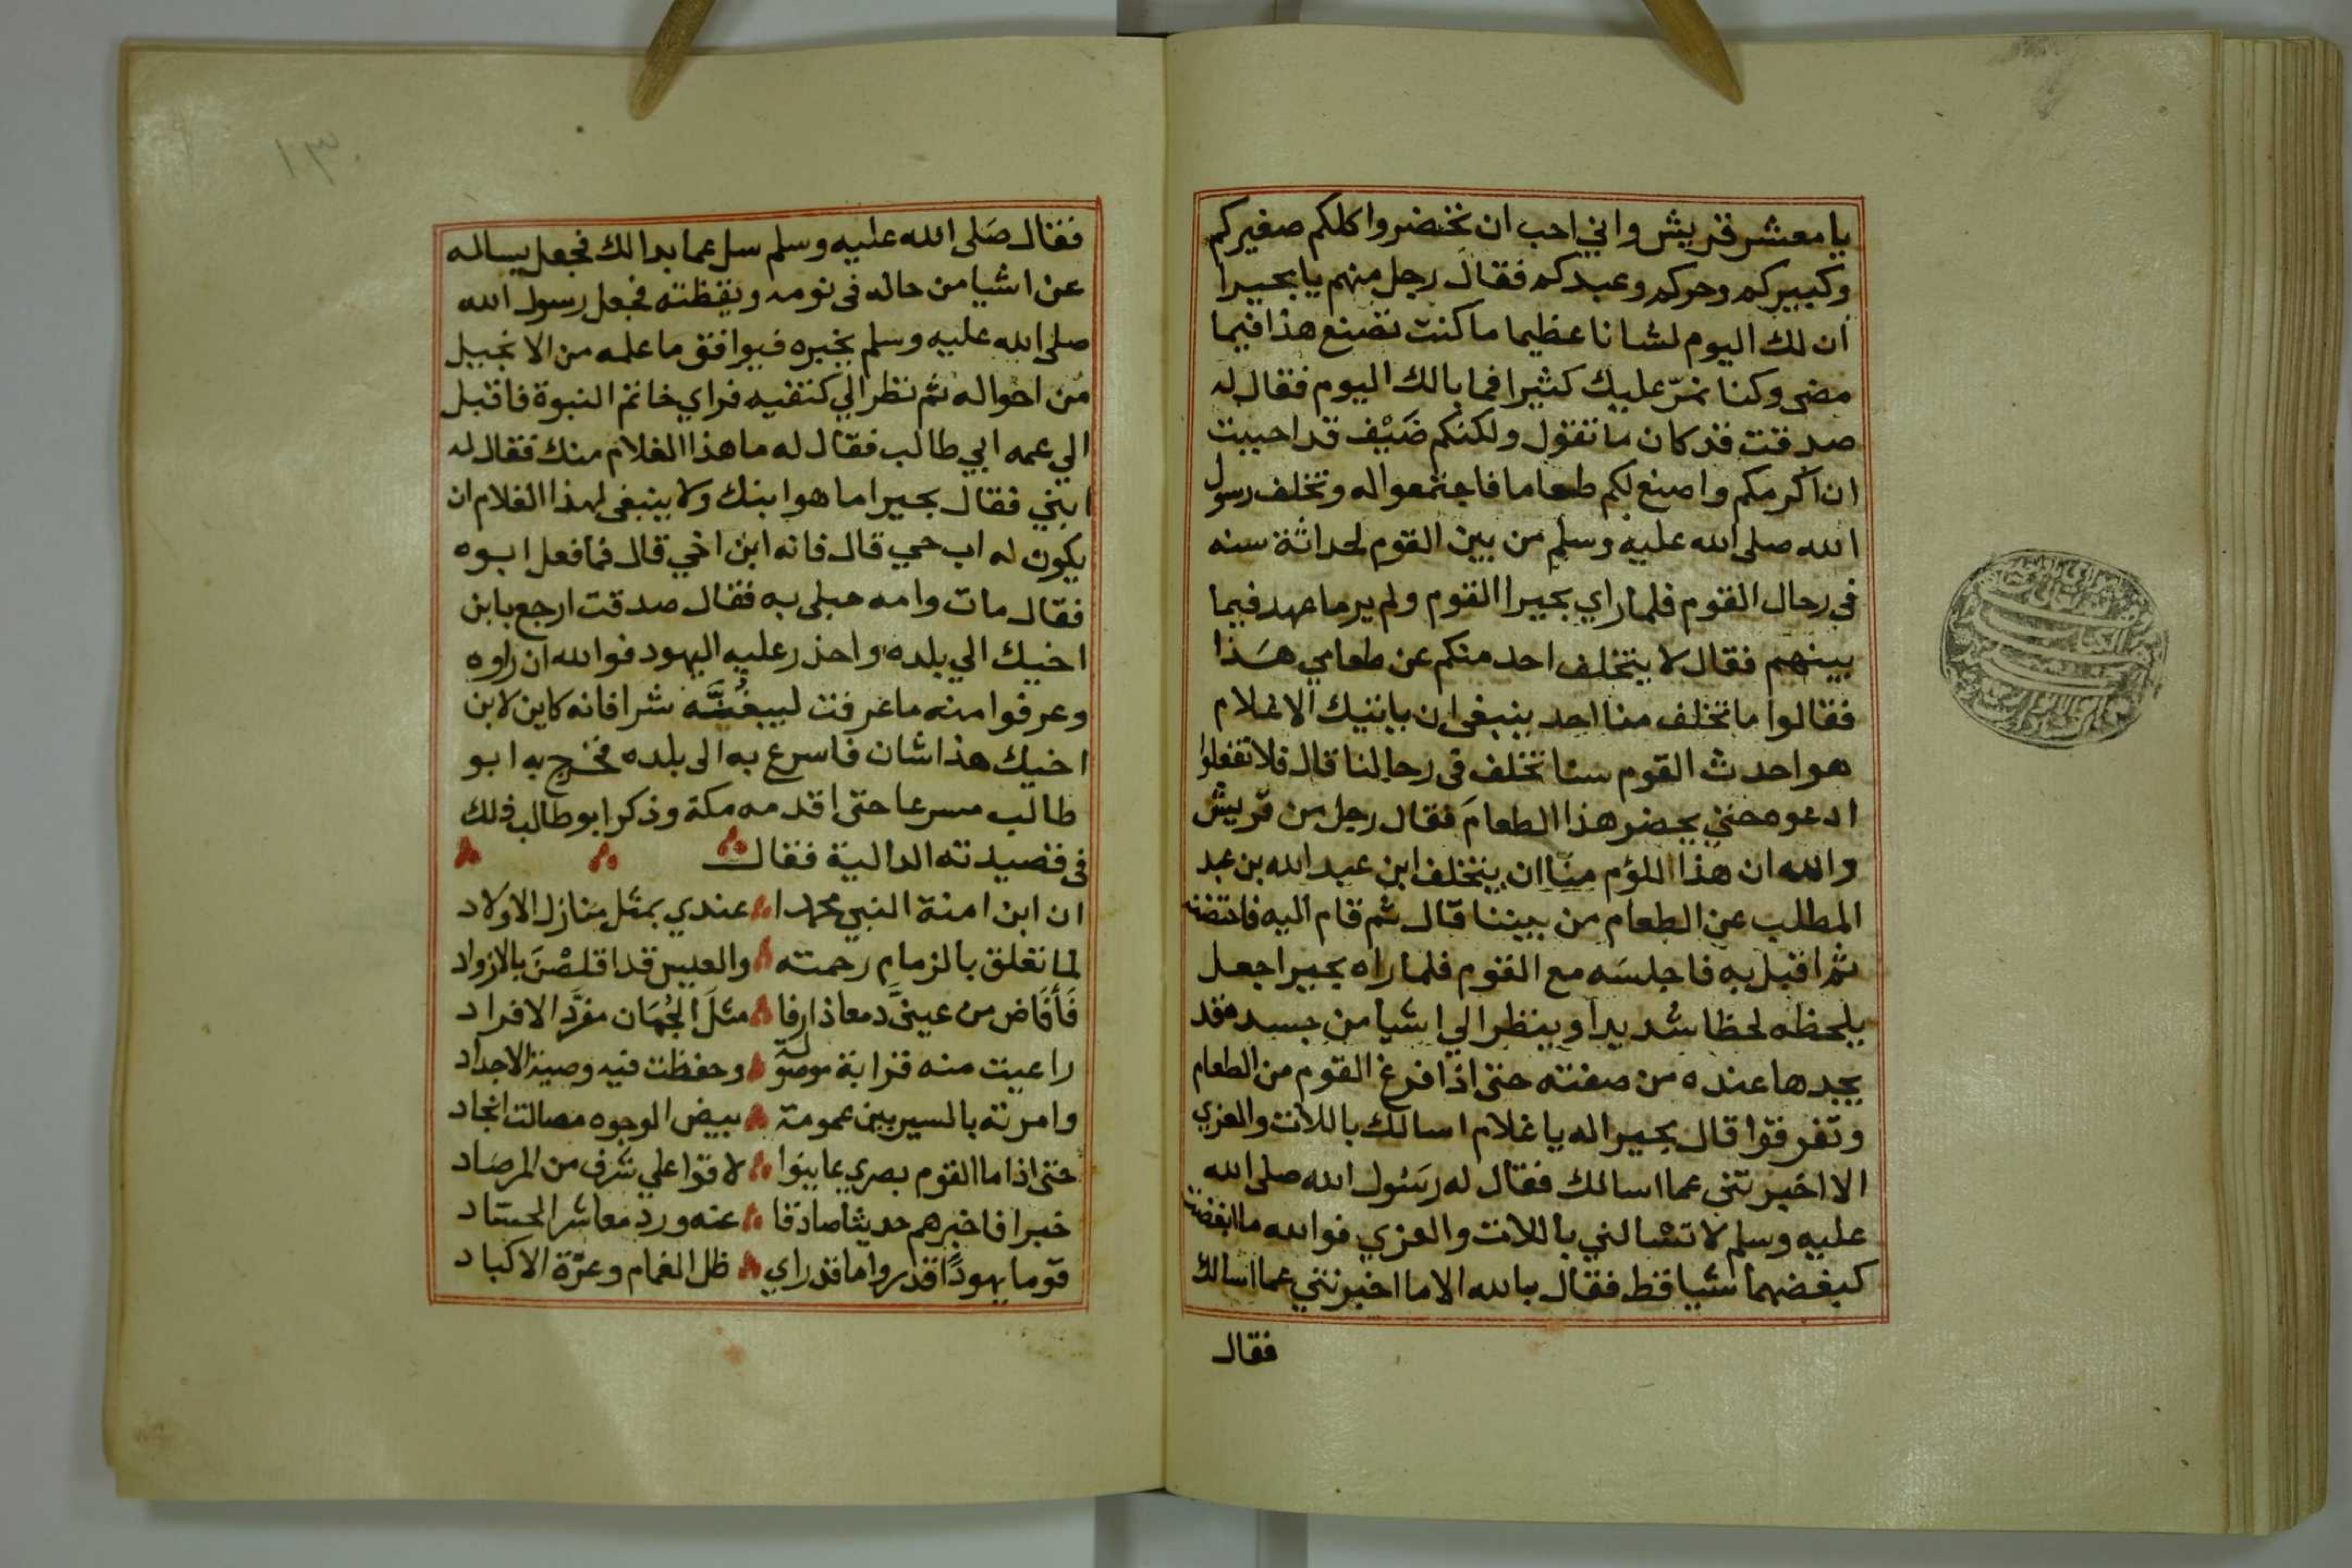 يا معشر قريش واني احب ان تحضروا كلكم صغيركم
وكبيركم وحركم وعبدكم فقال رجل منهم يا بحيرا
ان لك اليوم لشانا عظيما ما كنت تصنع هذا فيما
مضى وكنا نمرّ عليك كثيرا فما بالك اليوم فقال له
صدقت قد كان ما تقول ولكنكم ضَيْف قد احببت
ان اكرمكم واصنع لكم طعاما فاجتمعوا له وتخلف رسول
الله صلى الله عليه وسلم من بين القوم لحداثة سنه
في رحال القوم فلما راي بحيرا القوم ولم ير ما عهد فيما
بينهم فقال لا يتخلف احد منكم عن طعامي هَذا
فقالوا ما تخلف منا احد ينبغي ان ياتيك الا غلام
هو احدث القوم سنا تخلف في رحالنا قال فلا تفعلوا
ادعوه حتي يحضر هذا الطعامَ فقال رجل من قريش
والله ان هذا اللؤم منّا ان يتخلف ابن عبد الله بن عبد
المطلب عن الطعام من بيننا قال ثم قام اليه فاحتضنه
ثم اقبل به فاجلسَه مع القوم فلما راه بحيرا جعل
يلحظه لحظا شديدا وينظر الي اشيا من جسده قد
يجدها عنده من صفته حتى اذا فرغ القوم من الطعام
وتفرقوا قال بحيرا له يا غلام اسالك باللات والعزي
الا اخبرتني عما اسالك فقال له رَسُول الله صلى الله
عليه وسلم لا تسْالني باللات والعزي فوالله ما ابغضت
كبغضهما شيا قط فقال بالله الا ما اخبرتني عما اسالك
فقال
١٣
فقال صَلى الله عليه وسلم سل عما بدا لك فجعل يساله
عن اشيا من حاله في نومه ويقظته فجعل رسول الله
صلى الله عليه وسلم يخبره فيوافق ما علمه من الانجيل
من احواله ثم نظر الي كتفيه فراي خاتم النبوة فاقبل
الي عمه ابي طالب فقال له ما هذا الغلام منك فقال له
ابني فقال بحيرا ما هو ابنك ولا ينبغي لهذا الغلام ان
يكون له اب حي قال فانه ابن اخي قال فما فعل ابوه
فقال مات وامه حبلى به فقال صدقت ارجع بابن
اخيك الي بلده واحذر عليه اليهود فوالله ان راوه
وعرفوا منه ما عرفت ليبغُنَّه شرا فانه كاين لابن
اخيك هذا شان فاسرع به الى بلده فخرج به ابو
طالب مسرعا حتى اقدمه مكة وذكر ابو طالب ذلك
في قصيدته الدالية فقال
ان ابن امنة النبي محمدا عندي بمثل منازل الاولاد
لما تعلق بالزمام رحمته والعيس قد اقلصْنَ بالازواد
فَأَفَاض من عينيَّ دمعا ذارفا مثلَ الجُمَان مفرَّد الافراد
راعيت منه قرابة موصولة وحفظت فيه وصية الاجداد
وامرته بالسير بين عمومة بيض الوجوه مصالت انجاد
حتى اذا ما القوم بصري عاينوا لاقوا علي شرف من المرصاد
خبرا فاخبرهم حديثا صادقا عنه ورد معاشر الحساد
قوما يهودًا قد روا ما قد راي ظل الغمام وعزّة الاكباد